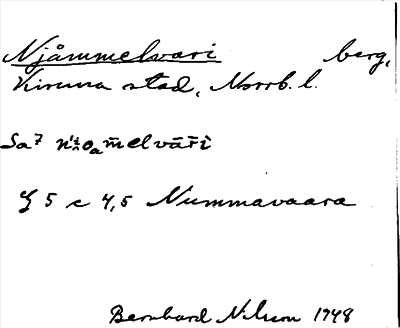 Njåmmelvari berg,
Kiruna stad, Norrb. l.
Sa7
§ 5 c 4,5 Nummavaara
Bernhard Nilsson 1948